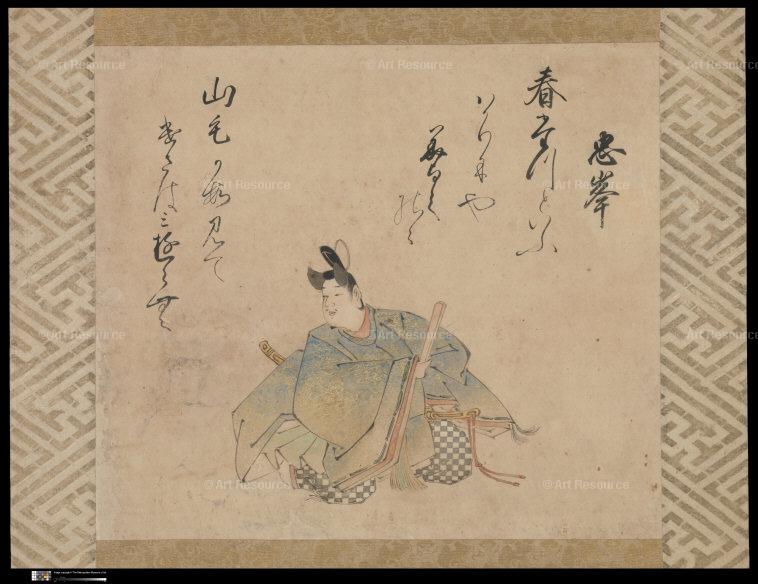 忠峯
春たつといふ
はかりにや
みよしの
のゝ
山もかすみて
けさはみゆらむ
© Art Resource
© Art Resource
© Art Resource
© Art Resource
© Art Resource
© Art Resource
© Art Resource
© Art Resource
© Art Resource
© Art Resource
© Art Resource
Image copyright © The Metropolitan Museum of Art